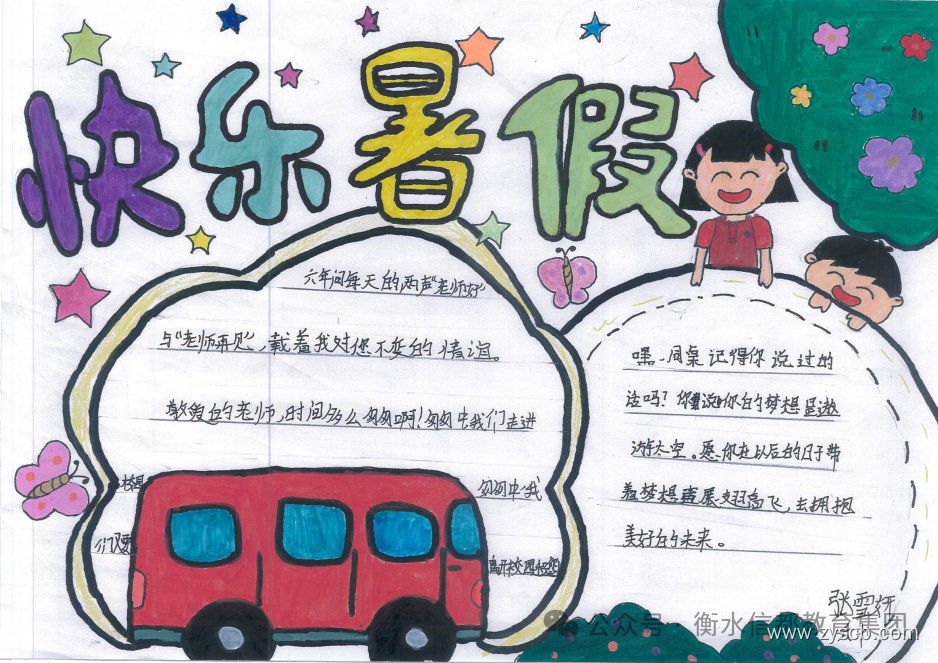 快乐暑假
六年间每天的两声“老师好”
与“老师再见”，载着我对您不变的情谊。
敬爱的老师，时间多么匆匆啊！匆匆中我们走进
匆匆中我
们又要
离开校园和您
嘿，同桌记得你说过的
话吗？你说你的梦想是遨
游太空。愿你在以后的日子带
着梦想展翅高飞，去拥抱
美好的未来。
张雪妍
公众号·衡水信都教育集团
www.zyscp.com